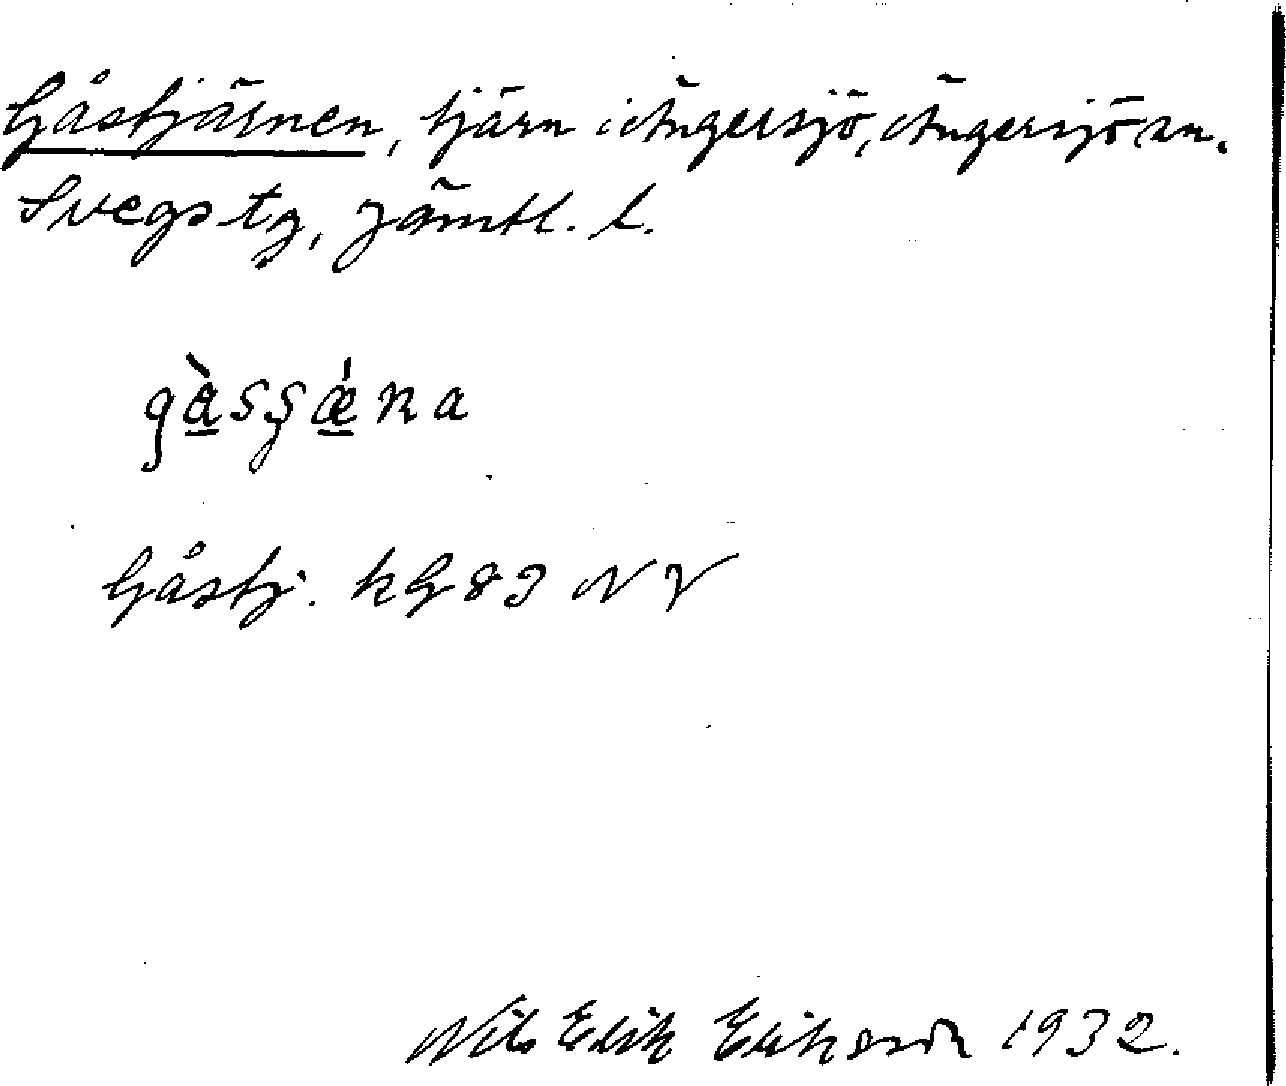 Gåstjärnen, tjärn i Ängersjö, Ängersjö sn.
Svegs tg, Jämtl. l.
gàsʂǽna
Gåstj. kG 83 NV
Nils Erik Erikson 1932.